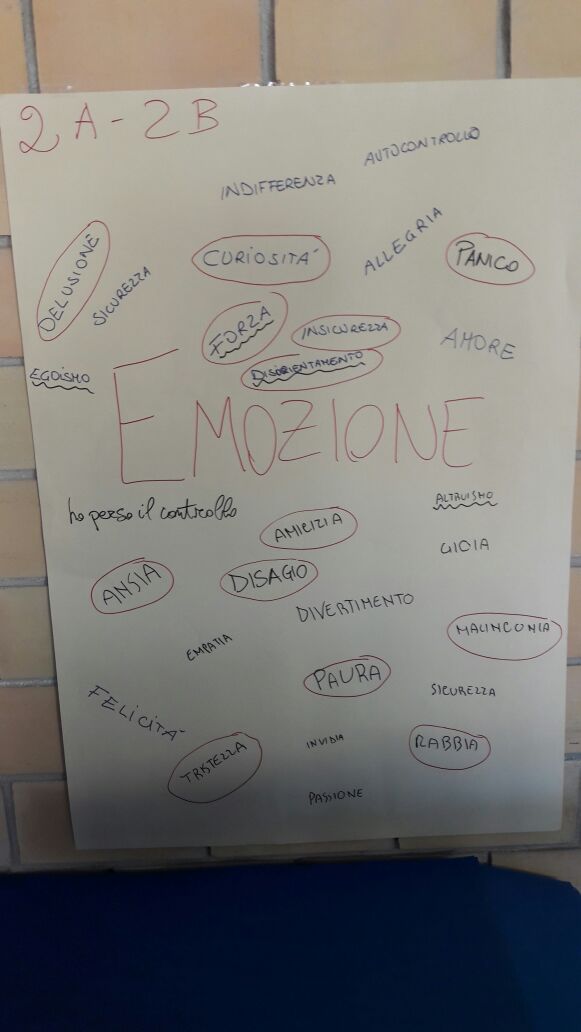 2A-2B
AUTOCONTROLLO
INDIFFERENZA
DELUSIONE
SICUREZZA
CURIOSITA'
ALLEGRIA
PANICO
FORZA
INSICUREZZA
AMORE
DISORIENTAMENTO
EGOISMO
EMOZIONE
ho perso il controllo
ALTRUISMO
AMICIZIA
GIOIA
ANSIA
DISAGIO
DIVERTIMENTO
MALINCONIA
EMPATIA
PAURA
SICUREZZA
FELICITA'
TRISTEZZA
INVIDIA
RABBIA
PASSIONE